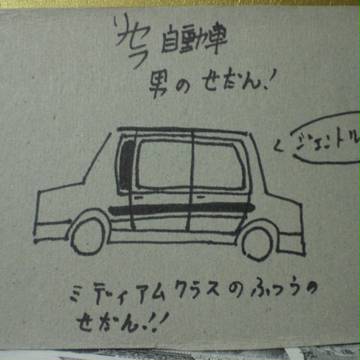 自動車
男のせだん!
ジェントル
ミディアムクラスのふつうの
せだん!!